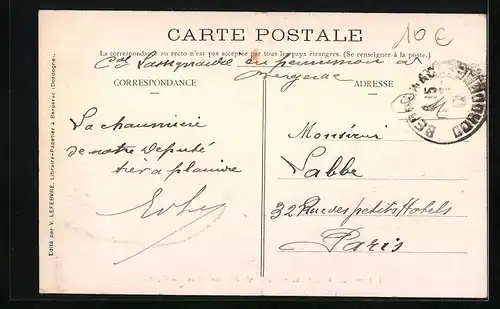 CARTE POSTALE
10 €
La correspondance au recto n'est pas acceptée par tous les pays étrangers. (Se renseigner à la poste.)
en permission à
Bergerac
CORRESPONDANCE
ADRESSE
La chaumière
de notre Député
très à plaindre
Monsieur
Labbe
32 Rue des petits Hotels
Paris
Edité par V. LEFEBVRE, Libraire-Papetier à Bergerac (Dordogne).
BERGERAC
15
DORDOGNE